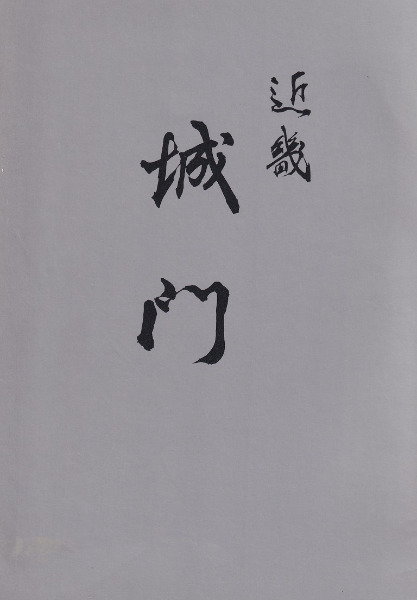 近畿
城门